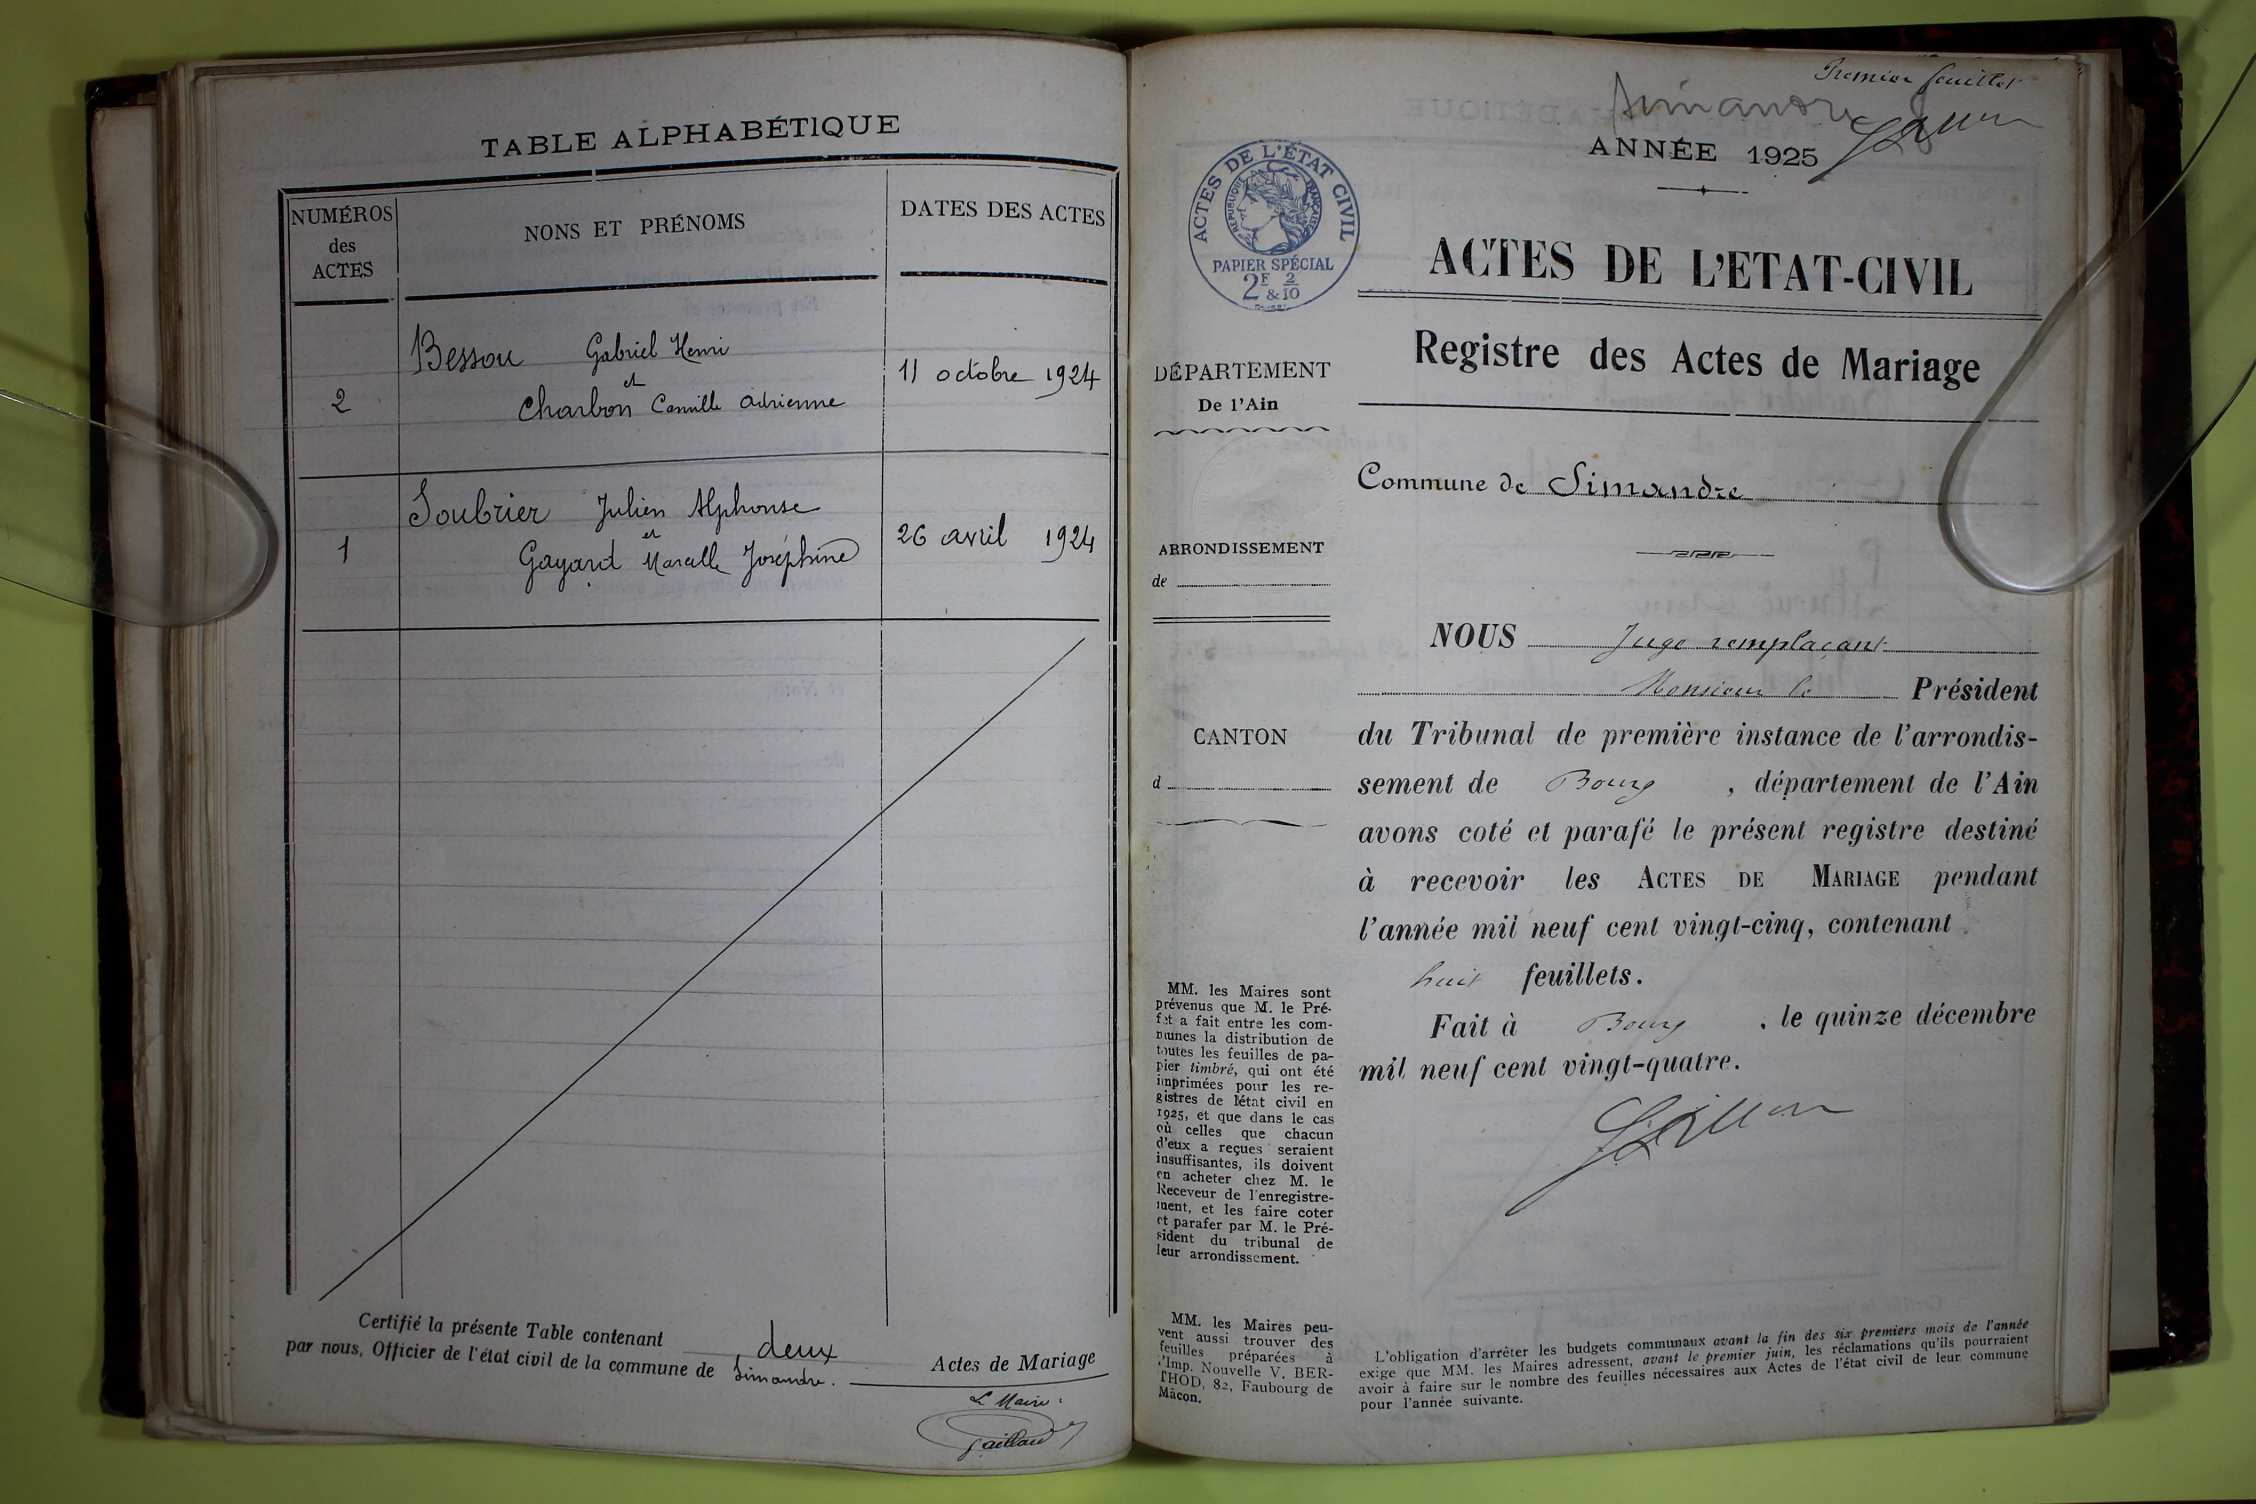 TABLE ALPHABÉTIQUE
NUMÉROS
des
ACTES
NONS ET PRÉNOMS
DATES DES ACTES
Bessou Gabriel Henri
et
2
Charbon Camille Adrienne
11 octobre 1924
Soubrier Julien Alphonse
et
1
Gayard Marcelle Joséphine
26 avril 1924
Certifié la présente Table contenant deux Actes de Mariage
par nous, Officier de l'état civil de la commune de Simandre.
Le Maire :
Gaillard
Premier feuillet
Simandre
ANNÉE 1925
ACTES DE L'ÉTAT CIVIL
RÉPUBLIQUE FRANÇAISE
PAPIER SPÉCIAL
2F & 2/10
ACTES DE L'ETAT-CIVIL
Registre des Actes de Mariage
DÉPARTEMENT
De l'Ain
Commune de Simandre
ARRONDISSEMENT
de
CANTON
d
NOUS Juge remplaçant
Monsieur le Président
du Tribunal de première instance de l'arrondis-
sement de Bourg , département de l'Ain
avons coté et parafé le présent registre destiné
à recevoir les ACTES DE MARIAGE pendant
l'année mil neuf cent vingt-cinq, contenant
huit feuillets.
Fait à Bourg , le quinze décembre
mil neuf cent vingt-quatre.
MM. les Maires sont
prévenus que M. le Pré-
fet a fait entre les com-
munes la distribution de
toutes les feuilles de pa-
pier timbré, qui ont été
imprimées pour les re-
gistres de l'état civil en
1925, et que dans le cas
où celles que chacun
d'eux a reçues seraient
insuffisantes, ils doivent
en acheter chez M. le
Receveur de l'enregistre-
ment, et les faire coter
et parafer par M. le Pré-
sident du tribunal de
leur arrondissement.
MM. les Maires peu-
vent aussi trouver des
feuilles préparées à
l'Imp. Nouvelle V. BER-
THOD, 82, Faubourg de
Mâcon.
L'obligation d'arrêter les budgets communaux avant la fin des six premiers mois de l'année
exige que MM. les Maires adressent, avant le premier juin, les réclamations qu'ils pourraient
avoir à faire sur le nombre des feuilles nécessaires aux Actes de l'état civil de leur commune
pour l'année suivante.